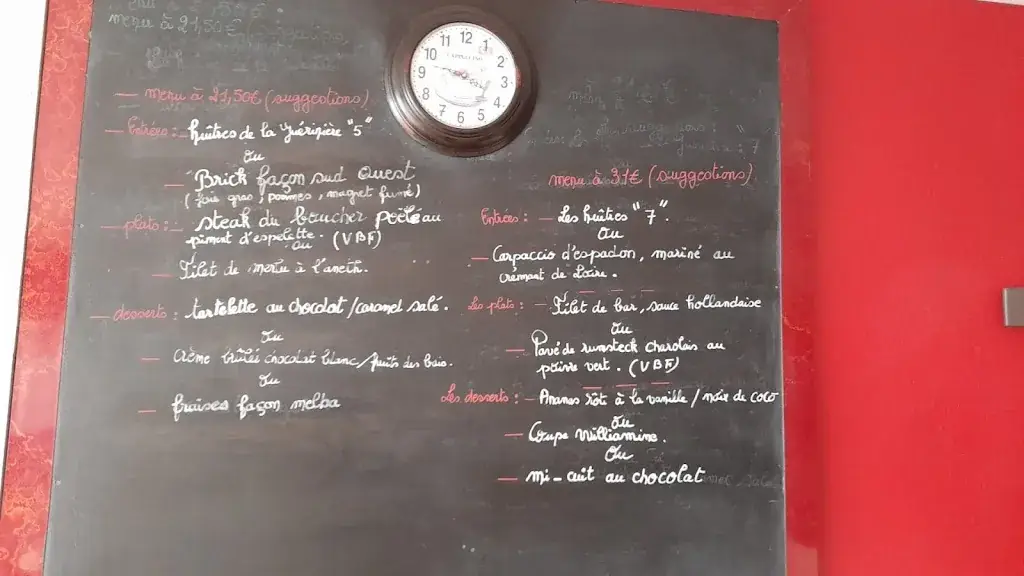 menu à 21,50€
12
1
2
3
4
5
6
7
8
9
10
11
CAPPUCCINO
— menu à 21,50€ (suggestions)
— Entrées : — huîtres de la Guérinière "5"
ou
— Brick façon sud Ouest
(foie gras, pommes, magret fumé)
— plats : — steak du boucher poêlé au
piment d'espelette. (VBF)
ou
— Filet de merlu à l'aneth.
— desserts : — tartelette au chocolat/caramel salé.
ou
— Crème brûlée chocolat blanc/fruits des bois.
ou
— fraises façon melba
menu à 31€ (suggestions)
Entrées : — Les huîtres "7".
ou
— Carpaccio d'espadon, mariné au
crémant de Loire.
Les plats : — Filet de bar, sauce hollandaise
ou
— Pavé de rumsteck charolais au
poivre vert. (VBF)
Les desserts : — Ananas rôti à la vanille/noix de coco
ou
— Coupe Williamine.
Ou
— mi-cuit au chocolat